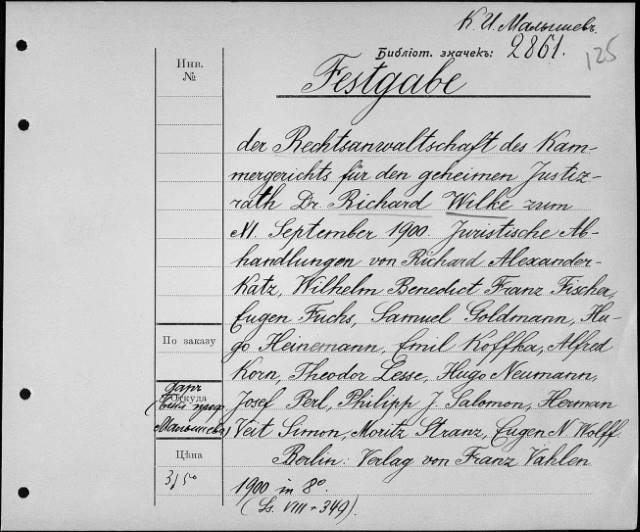 К. И. Малышевъ.
Библіот. значекъ: 2861.
125
Инв.
№
Festgabe
der Rechtsanwaltschaft des Kam-
mergerichts für den geheimen Justiz-
rath Dr. Richard Wilke zum
11. September 1900. Juristische Ab-
handlungen von Richard Alexander-
Katz, Wilhelm Benedict Franz Fischer,
Eugen Fuchs, Samuel Goldmann, Hu-
go Heinemann, Emil Koffka, Alfred
Korn, Theodor Lesse, Hugo Neumann,
Josef Perl, Philipp J. Salomon, Herman
Veit Simon, Moritz Stranz, Eugen N. Wolff.
Berlin: Verlag von Franz Vahlen
1900 in 8º.
(Ss. VIII + 349).
По заказу
Даръ
Откуда
Малышева)
Цѣна
3 р 50